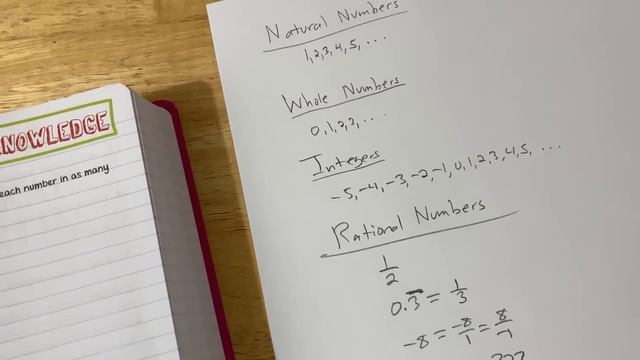 NOWLEDGE
each number in as many
Natural Numbers
1,2,3,4,5, ...
Whole Numbers
0,1,2,3, ...
Integers
-5,-4,-3,-2,-1,0,1,2,3,4,5, ...
Rational Numbers
1/2
0.3̅ = 1/3
-8 = -8/1 = 8/-1